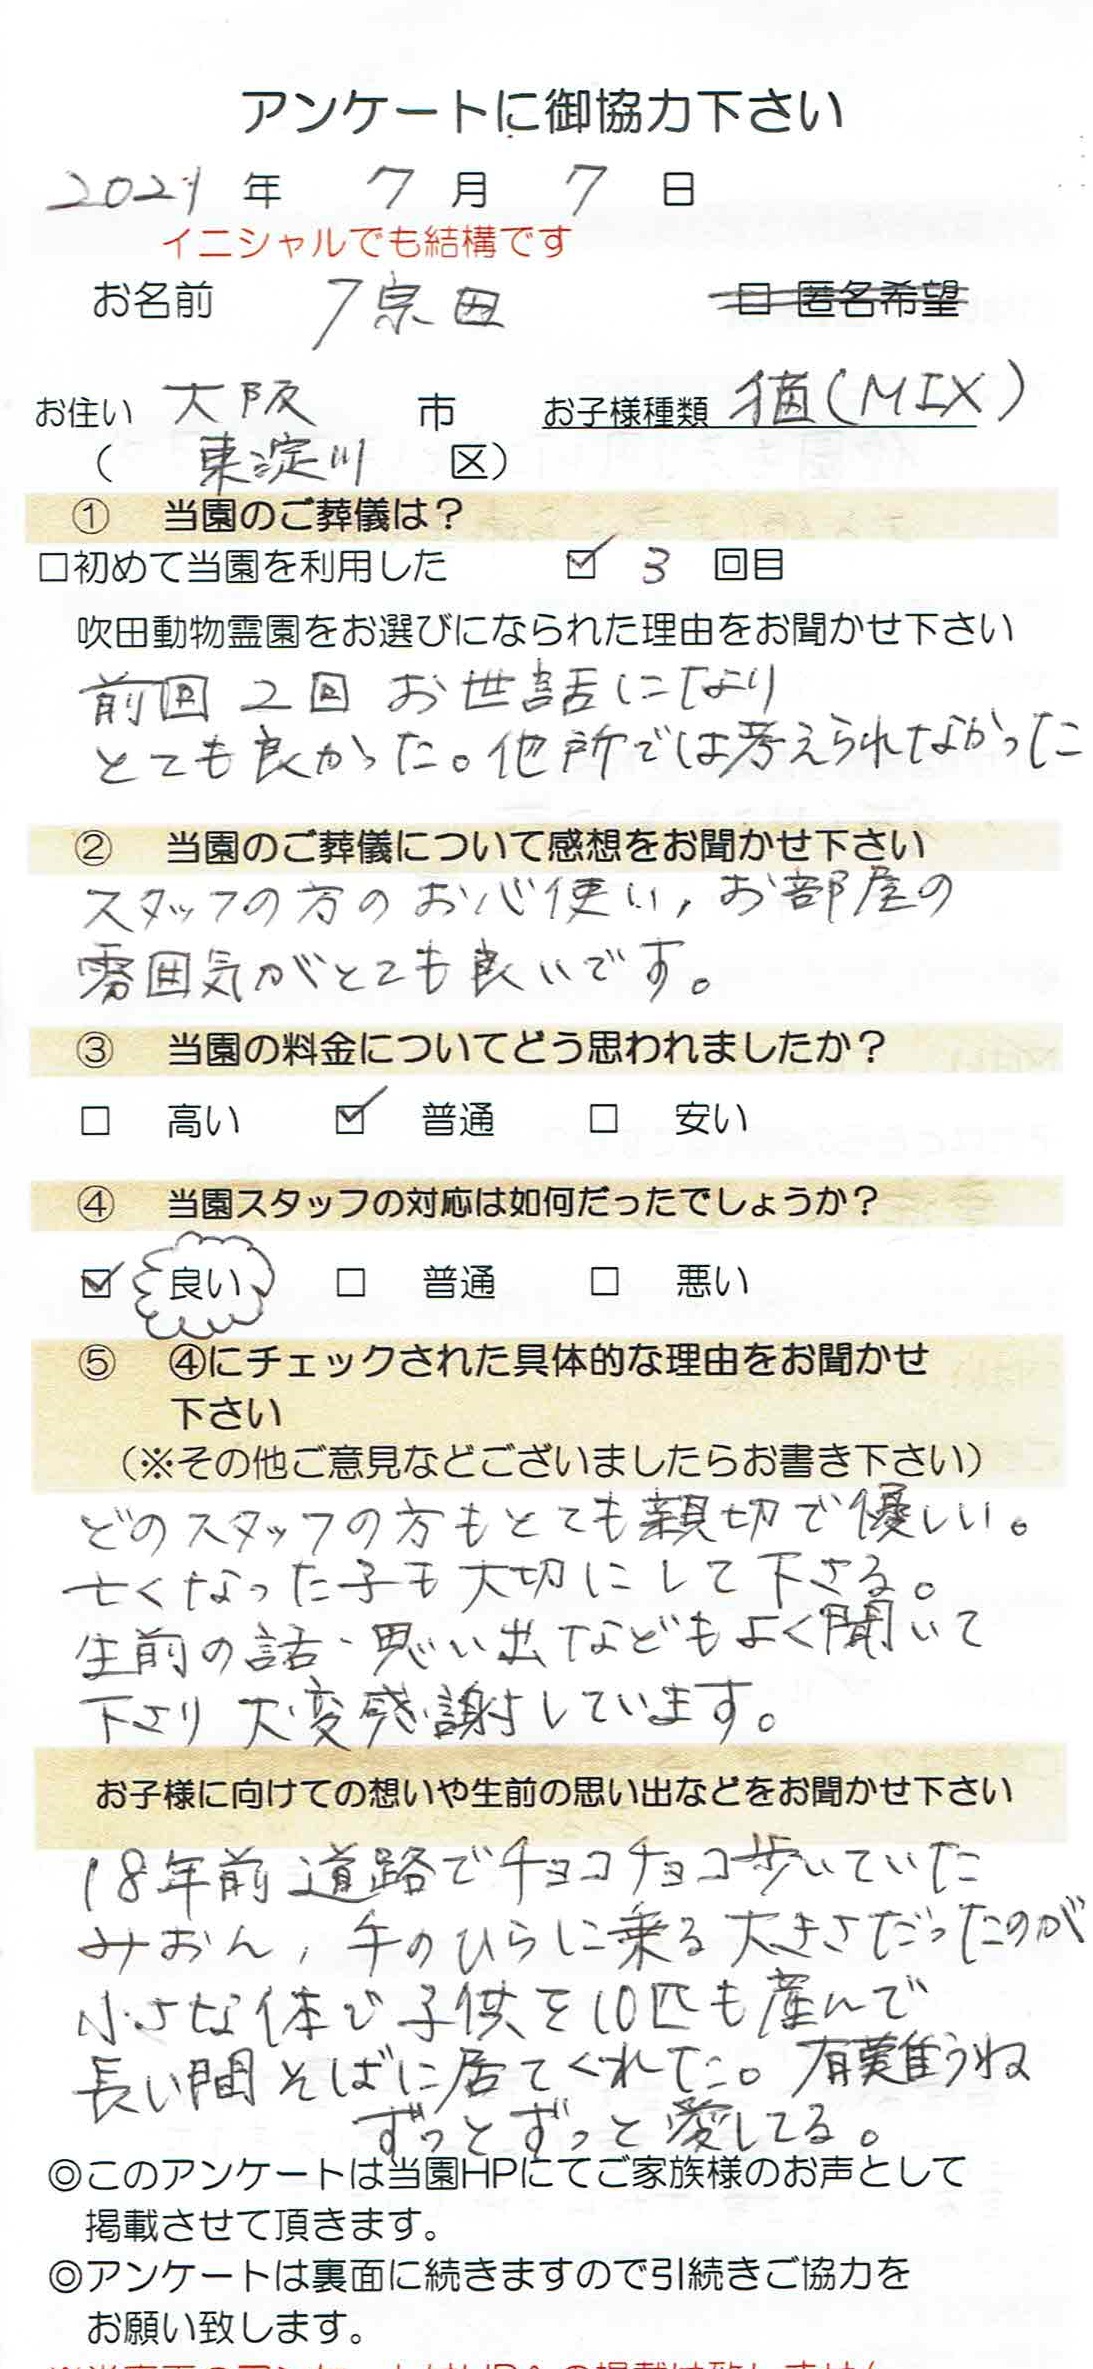 アンケートに御協力下さい
2021 年 7 月 7 日
イニシャルでも結構です
お名前 田 □ 匿名希望
お住い 大阪 市 お子様種類 猫(MIX)
( 東淀川 区)
① 当園のご葬儀は?
□初めて当園を利用した ☑ 3 回目
吹田動物霊園をお選びになられた理由をお聞かせ下さい
前回 2回 お世話になり
とても良かった。他所では考えられなかった
② 当園のご葬儀について感想をお聞かせ下さい
スタッフの方のお心使い, お部屋の
雰囲気がとても良いです。
③ 当園の料金についてどう思われましたか?
□ 高い ☑ 普通 □ 安い
④ 当園スタッフの対応は如何だったでしょうか?
☑ 良い □ 普通 □ 悪い
⑤ ④にチェックされた具体的な理由をお聞かせ
下さい
(※その他ご意見などございましたらお書き下さい)
どのスタッフの方もとても親切で優しい。
亡くなった子も大切にして下さる。
生前の話・思い出などもよく聞いて
下さり 大変感謝しています。
お子様に向けての想いや生前の思い出などをお聞かせ下さい
18年前道路でチョコチョコ歩いていた
みおん, 手のひらに乗る大きさだったのが
小さな体で子供を10匹も産んで
長い間そばに居てくれた。有難うね
ずっとずっと愛してる。
◎このアンケートは当園HPにてご家族様のお声として
掲載させて頂きます。
◎アンケートは裏面に続きますので引続きご協力を
お願い致します。